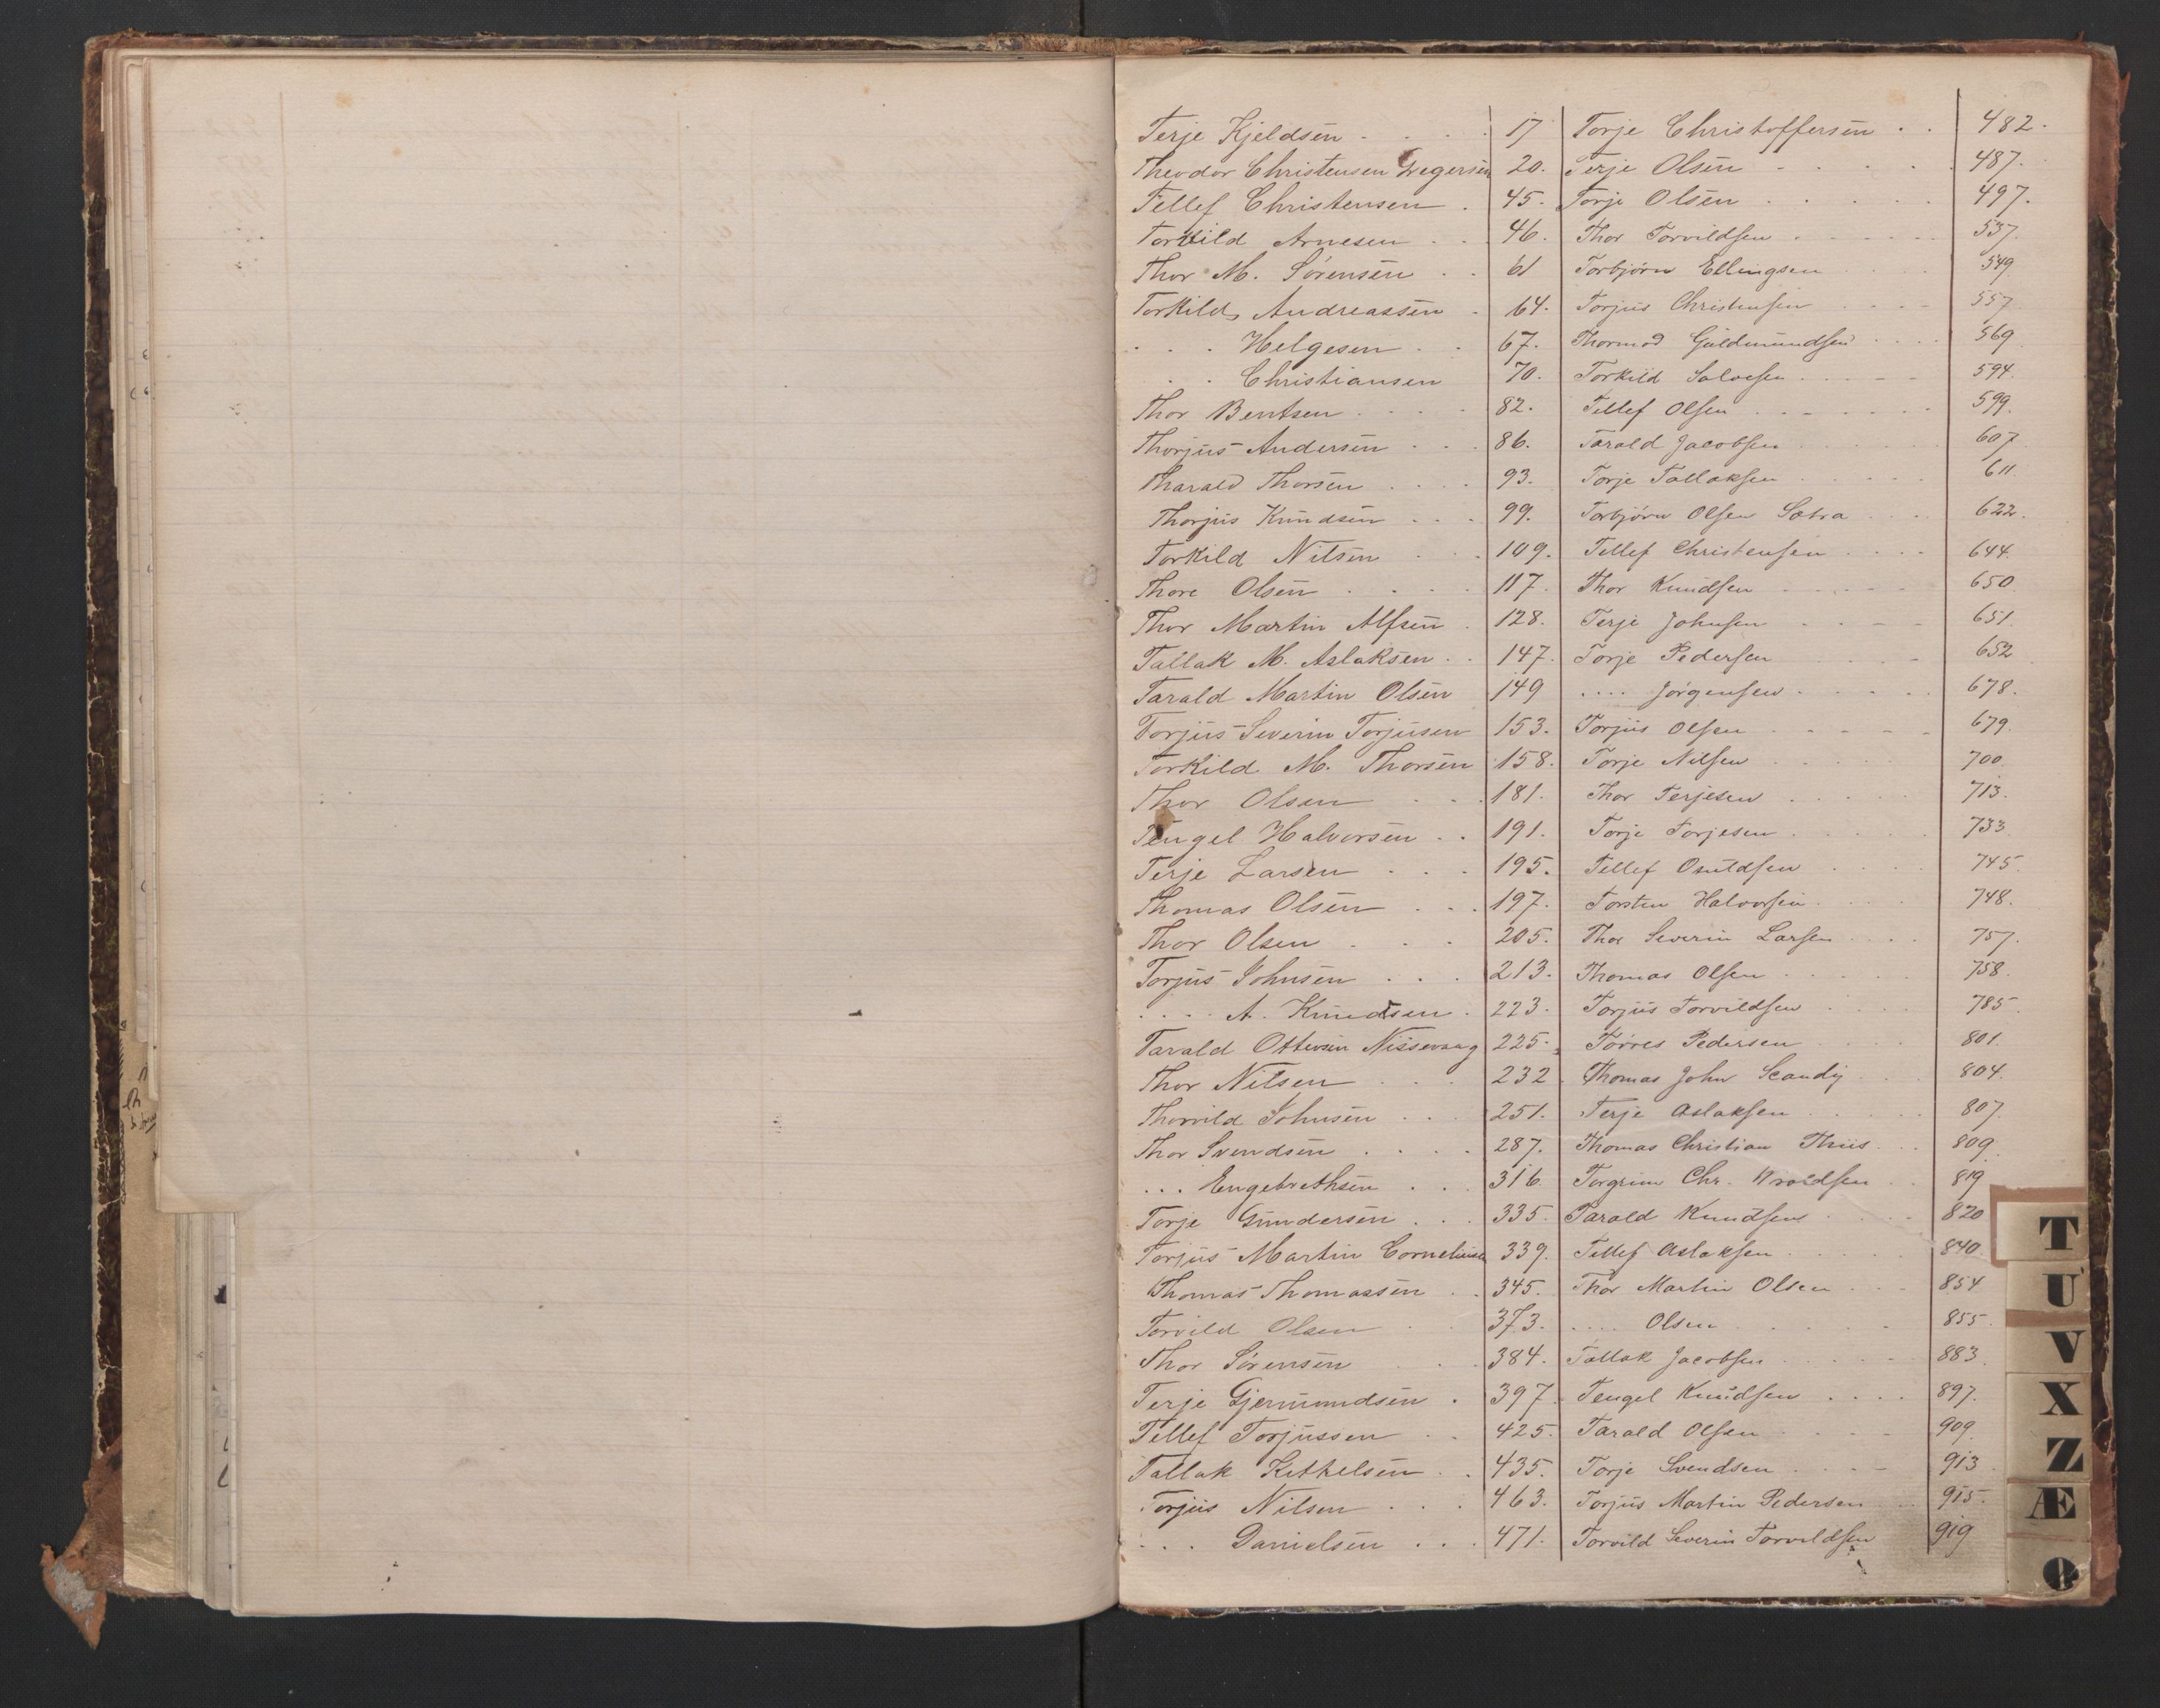 Terje Kjeldsen . . . . 17
Theodor Christensen Gregersen 20.
Tellef Christensen . 45.
Torkild Arnesen . . . 46.
Thor M. Sörensen . . 61
Torkild Andreassen . 64.
. . . Helgesen . . 67.
. . Christiansen 70.
Thor Bentsen . . . . 82.
Thorjus Andersen . . . 86.
Tharald Thorsen . . . . 93.
Thorjus Knudsen . . . 99.
Torkild Nilsen . . . 109.
Thore Olsen . . . . 117.
Thor Martin Alfsen . 128.
Tallak M. Aslaksen . . 147.
Tarald Martin Olsen 149
Torjus Severin Torjusen 153.
Torkild M. Thorsen 158.
Thor Olsen . . . 181.
Tengel Halvorsen . . 191.
Terje Larsen . . . 195.
Thomas Olsen . . . 197.
Thor Olsen . . . 205.
Torjus Johnsen . . . 213.
. . . . A. Knudsen . 223.
Tarald Ottersen Nissevaag 225.
Thor Nilsen . . . 232
Thorvild Johnsen . . . 251.
Thor Svendsen . . . . 287.
. . . Engebrethsen . . . 316.
Torje Gundersen . . . 335.
Torjus Martin Corneliusen 339.
Thomas Thomassen . . 345.
Torvild Olsen . . 373.
Thor Sörensen . . 384.
Terje Gjermundsen . 397
Tellef Torjussen . . 425.
Tallak Kethelsen . . 435.
Torjus Nilsen . . . 463.
. . . Danielsen . . . 471.
Torje Christoffersen . . 482.
Terje Olsen . . . . . 487.
Torje Olsen . . . . . 497.
Thor Torvildsen . . . . . 537.
Torbjörn Ellingsen . . . 549
Torjus Christensen . . . 557
Thormod Guldmundsen . . . . 569
Torkild Salvesen . . . . 594.
Tellef Olsen . . . . . . . 599.
Tarald Jacobsen . . . . . 607
Torje Tallaksen . . . . . 611
Torbjörn Olsen Sætra . . . 622.
Tellef Christensen . . . . 644.
Thor Knudsen . . . . . 650
Terje Johnsen . . . . 651.
Torje Pedersen . . . . 652
. . . . Jörgensen . . . . . 678.
Torjus Olsen . . . . . . 679.
Torje Nilsen . . . . . 700.
Thor Terjesen . . . . . 713.
Torje Torjesen . . . . . 733.
Tellef Osuldsen . . . . 745.
Torsten Halvorsen . . . . 748.
Thor Severin Larsen . . . . 757.
Thomas Olsen . . . . . 758.
Torjus Torvildsen . . . . 785
Törres Pedersen . . . . 801.
Thomas John Scandy . . . 804.
Terje Aslaksen . . . . . 807.
Thomas Christian Thiis . . . 809.
Torgrim Chr. Wroldsen . . 819
Tarald Knudsen . . . . 820
Tellef Aslaksen . . . . . 840.
Thor Martin Olsen . . . 854
. . . . Olsen . . . . . . 855.
Tallak Jacobsen . . . . . 883.
Tengel Knudsen . . . . 897.
Tarald Olsen . . . . . 909.
Torje Svendsen . . . . 913
Torjus Martin Pedersen . . 915.
Torvild Severin Torvildsen 919
T
U
V
X
Z
Æ
Ø